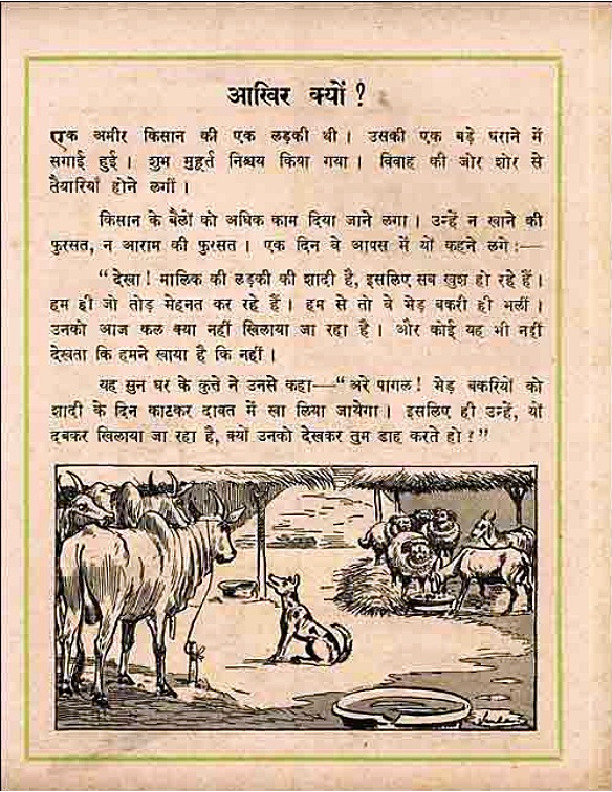 आखिर क्यों ?
एक अमीर किसान की एक लड़की थी । उसकी एक बड़े घराने में
सगाई हुई । शुभ मुहूर्त्त निश्चय किया गया । विवाह की जोर शोर से
तैयारियाँ होने लगीं ।
किसान के बैलों को अधिक काम दिया जाने लगा । उन्हें न खाने की
फुरसत, न आराम की फुरसत । एक दिन वे आपस में यों कहने लगे :—
“ देखा ! मालिक की लड़की की शादी है, इसलिए सब खुश हो रहे हैं ।
हम ही जो तोड़ मेहनत कर रहे हैं । हम से तो वे भेड़ बकरी ही भलीं ।
उनको आज कल क्या नहीं खिलाया जा रहा है । और कोई यह भी नहीं
देखता कि हमने खाया है कि नहीं ।
यह सुन घर के कुत्ते ने उनसे कहा—“ अरे पागल ! भेड़ बकरियों को
शादी के दिन काटकर दावत में खा लिया जायेगा । इसलिए ही उन्हें, यों
दबकर खिलाया जा रहा है, क्यों उनको देखकर तुम डाह करते हो ? ”